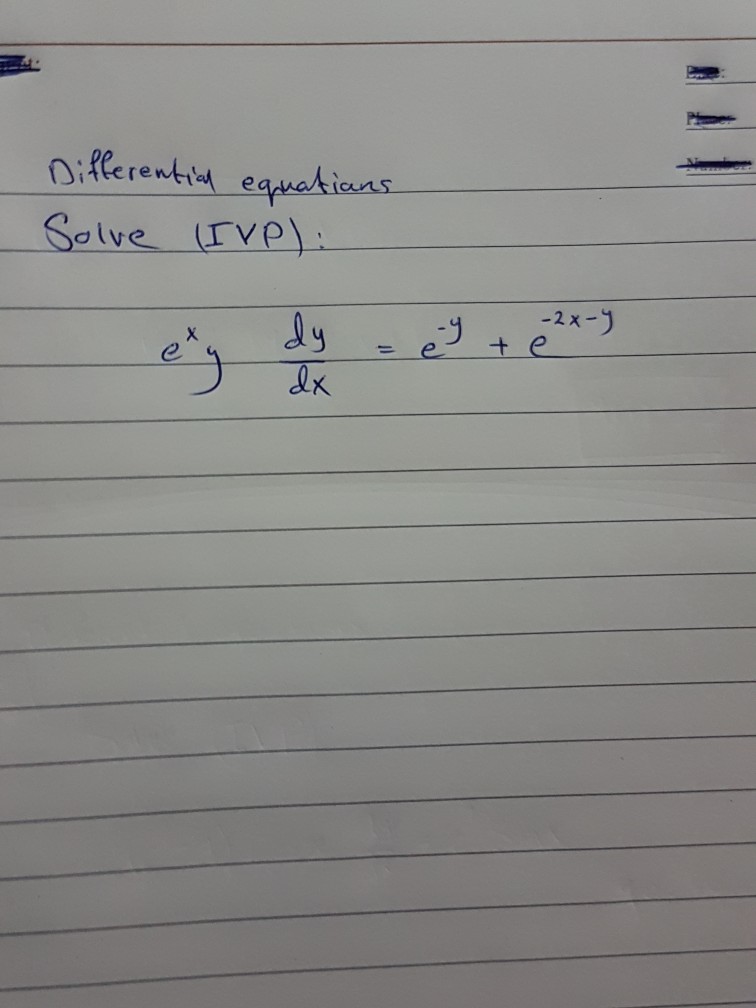 Differential equations
Solve (IVP):
e^x y dy/dx = e^-y + e^-2x-y